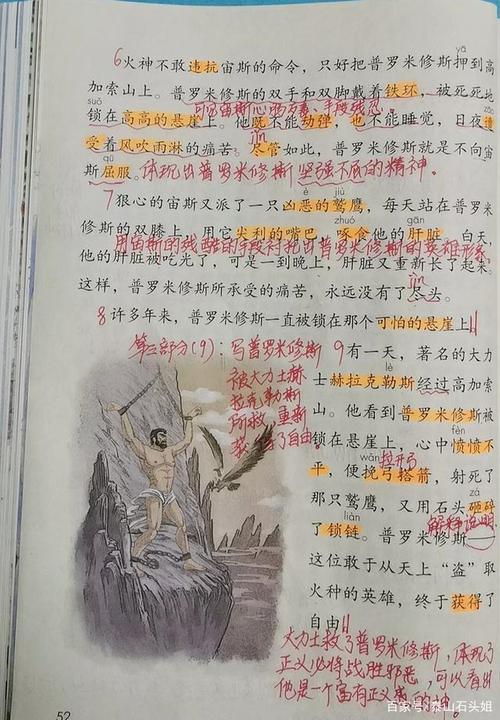 yā
6火神不敢违抗宙斯的命令，只好把普罗米修斯押到高
加索山上。普罗米修斯的双手和双脚戴着铁环，被死死地
可见宙斯心肠歹毒、手段残忍。
suǒ
锁在高高的悬崖上。他既不能动弹，也不能睡觉，日夜遭
jǐn
受着风吹雨淋的痛苦。尽管如此，普罗米修斯就是不向宙
qū
斯屈服。体现出普罗米修斯坚强不屈的精神。
è jiù
7狠心的宙斯又派了一只凶恶的鹫鹰，每天站在普罗米
zhuó gān
修斯的双膝上，用它尖利的嘴巴，啄食他的肝脏。白天，
用宙斯的残酷的手段衬托出普罗米修斯的英雄形象
他的肝脏被吃光了，可是一到晚上，肝脏又重新长了起来。
jìn
这样，普罗米修斯所承受的痛苦，永远没有了尽头。
8许多年来，普罗米修斯一直被锁在那个可怕的悬崖上。
第三部分(9)：写普罗米修斯
被大力士赫
拉克勒斯
所救，重新
获得了自由。
9有一天，著名的大力
lè
士赫拉克勒斯经过高加索
山。他看到普罗米修斯被
fèn
锁在悬崖上，心中愤愤不
wǎn 拉开弓
平，便挽弓搭箭，射死了
那只鹫鹰，又用石头砸碎
liàn 解释说明
了锁链。普罗米修斯——
这位敢于从天上“盗”取
火种的英雄，终于获得了
自由。
大力士救了普罗米修斯，体现了
正义必将战胜邪恶，可以看出
他是一个富有正义感的神。
52
百家号/泰山石头姐